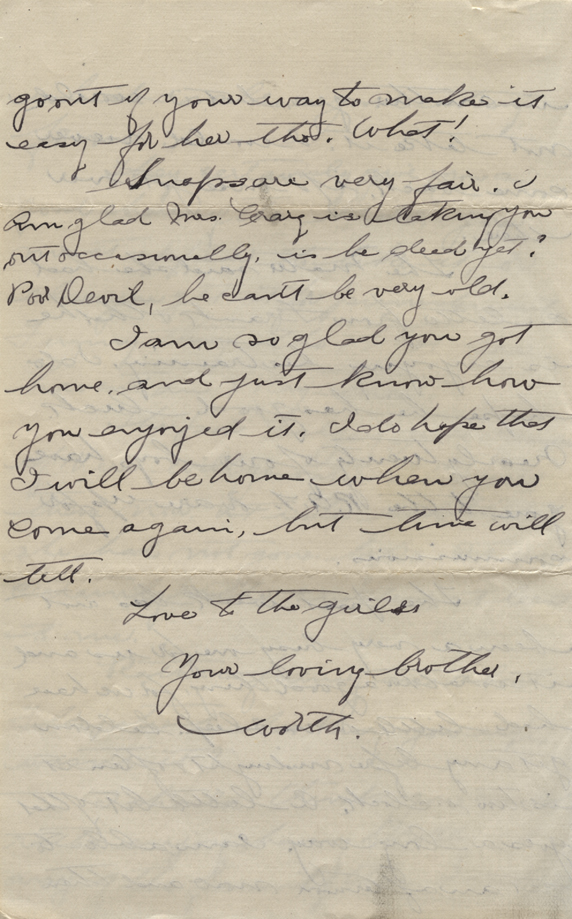 go out of your way to make it
easy for her tho. What!
Snaps are very fair. I
am glad Mrs. Craig is taking you
out occasionally. is he dead yet?
Poor Devil, he can't be very old.
I am so glad you got
home, and just know how
you enjoyed it. I do hope that
I will be home when you
come again, but time will
tell.
Love to the girls
Your loving brother,
Worth.